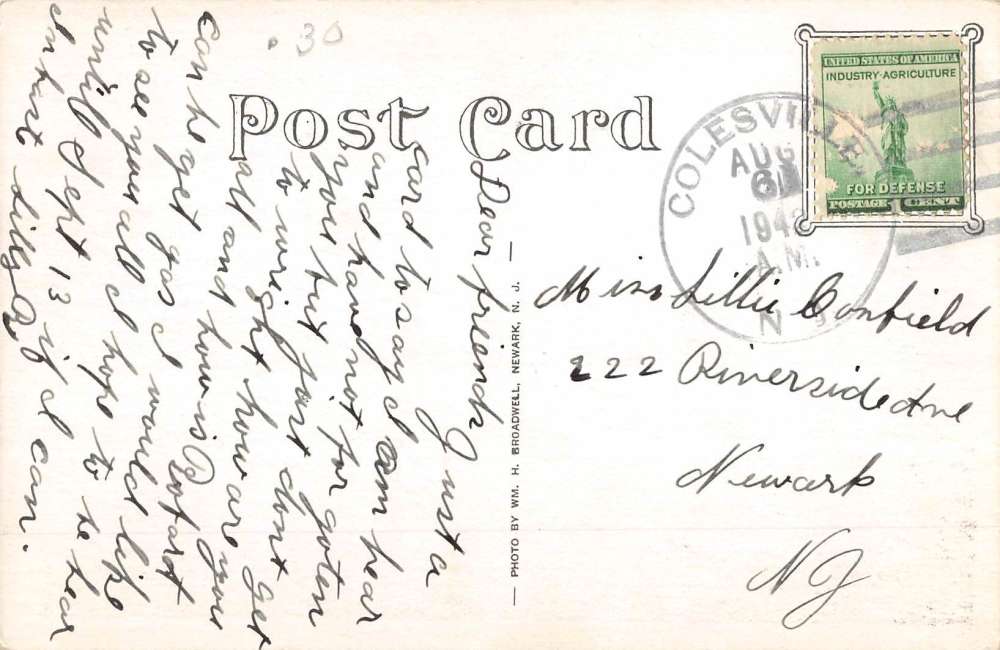 .30
Post Card
UNITED STATES OF AMERICA
INDUSTRY-AGRICULTURE
FOR DEFENSE
POSTAGE 1 CENT
COLESVILLE
AUG
6
194
A.M.
N
Miss Lillie Confield
222 Riverside Ave
Newark
NJ
PHOTO BY WM. H. BROADWELL, NEWARK, N. J.
Dear friends
Just a
card to say I am hear
and have not for goten
you but just dont get
to wright how are you
all and how is Robart
can he get gas I would like
to see you all I hope to be hear
untill Sept 13 if I can.
In hart Lilly B